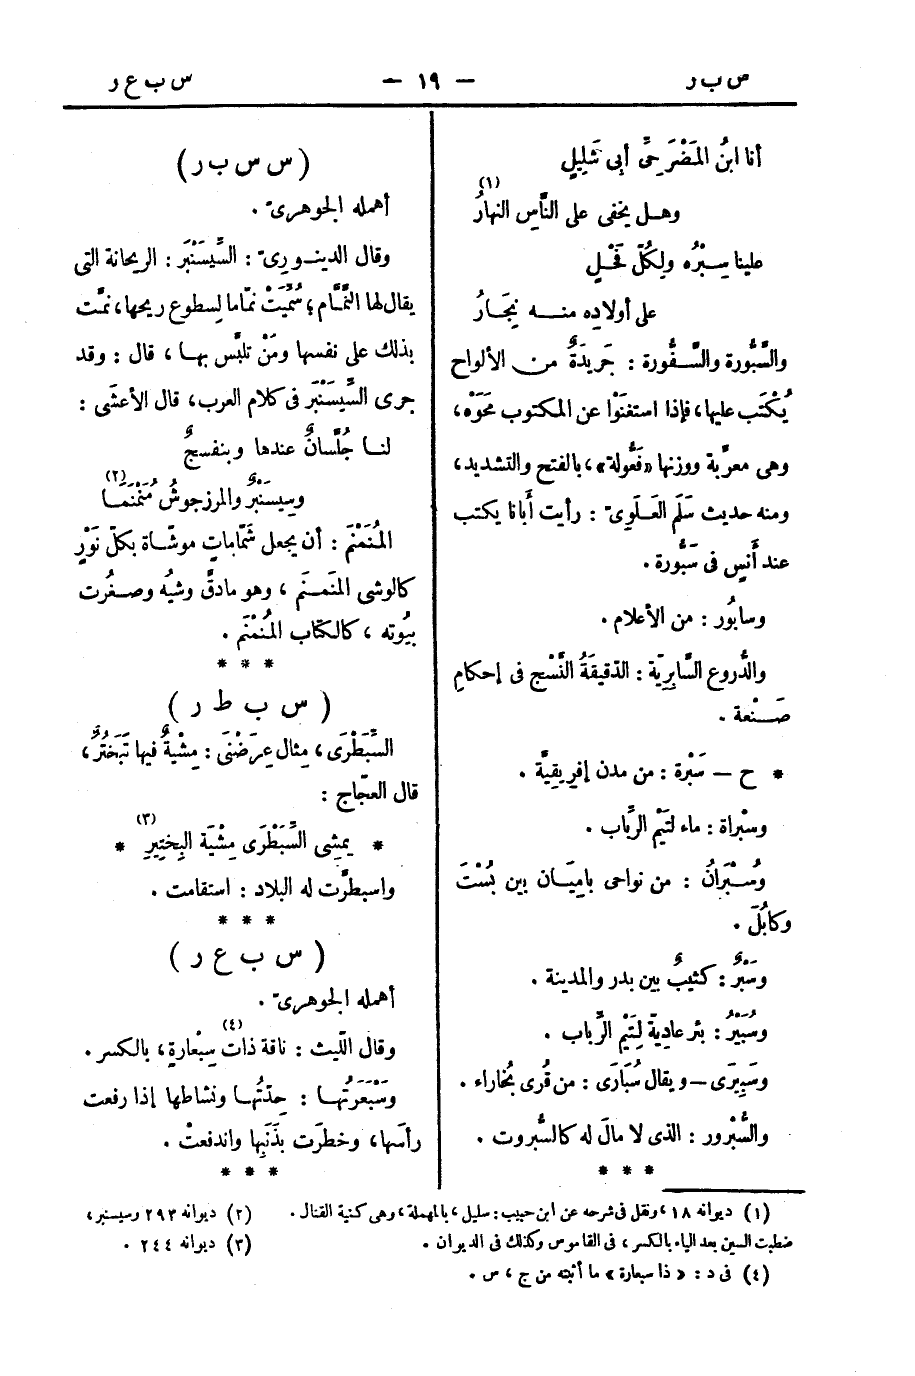 ص ب ر
— ١٩ —
س ب ع ر
أنا ابنُ المَضْرَحىِّ أبى شَلِيلٍ
وهل يخفى على النَّاسِ النهارُ (١)
علينا سِبْرُه ولِكُلّ فَحْلٍ
على أولاده منه نِجَارُ
والسَّبُّورة والسَّفُّورة : جَرِيدَةٌ من الألواح
يُكْتَب عليها، فإذا استغنَوْا عن المكتوب مَحَوْه،
وهى معرَّبة ووزنها «فَعُّولة»، بالفتح والتشديد،
ومنه حديث سَلَم العَلَوِىّ : رأيت أَبانا يكتب
عند أَنَسٍ فى سَبُّورة .
وسابُور : من الأعلام .
والدُّروع السَّابِرِيّة : الدّقيقَةُ النَّسْج فى إحكامِ
صَنْعة .
* ح — سَبْرة : من مدن إفريقِيَّة .
وسَبْراة : ماء لتَيْم الرِّباب .
وسُبْرَانُ : من نواحى بامِيَان بين بُسْتَ
وكابُلَ .
وسَبَرٌ : كثيبٌ بين بدر والمدينة .
وسُبَيْرٌ : بئر عادِيّة لِتَيْم الرِّباب .
وسَبِيرَى — ويقال سُبَارَى : من قُرى بُخاراء .
والسُّبْرور : الذى لا مالَ له كالسُّبروت .
* * *
( س س ب ر )
أهمله الجوهرىّ .
وقال الدينورىّ : السَِّيسَنْبَر : الريحانة التى
يقال لها النَّمَّام؛ سُمِّيَتْ نمّاما لِسطوع ريحها، نمَّت
بذلك على نفسها ومَنْ تلبَّس بها ، قال : وقد
جرى السَِّيسَنْبَر فى كلام العرب، قال الأعشَى :
لنا جُلَّسانٌ عندها وبنفسجٌ
وسِيسَنْبَرٌ والمرزجوشُ مُنَمْنَمَا (٢)
المُنَمْنَم : أن يجعل شَمّاماتٍ موشّاة بكلّ نَوْرٍ
كالوشى المنَمنَم ، وهو مادقَّ وشيُه وصغُرت
بيُوته ، كالكتاب المُنَمْنَم .
* * *
( س ب ط ر )
السِّبَطْرَى، مثال عِرَضْنَى : مِشْيةٌ فيها تَبَخْتُرٌ،
قال العجّاج :
* يمشِى السِّبَطْرَى مِشْيَة البِخْتِيرِ (٣) *
واسبطرَّت له البلاد : استقامت .
* * *
( س ب ع ر )
أهمله الجوهرىّ .
وقال اللّيث : ناقة ذات سِبْعارةٍ (٤)، بالكسر .
وسَبْعَرَتُها : حِدّتُها ونشاطها إذا رفعت
رأسَها، وخطرَت بذَنَبِها واندفعتْ .
* * *
(١) ديوانه ١٨، ونقل فى شرحه عن ابن حبيب : سليل ، بالمهملة، وهى كنية القتال .
(٢) ديوانه ٢٩٣ وسيسنبر،
ضبطت السين بعد الياء بالكسر ، فى القاموس وكذلك فى الديوان .
(٣) ديوانه ٢٤٤ .
(٤) فى د : « ذا سبعارة » ما أثبته من ج ، س .